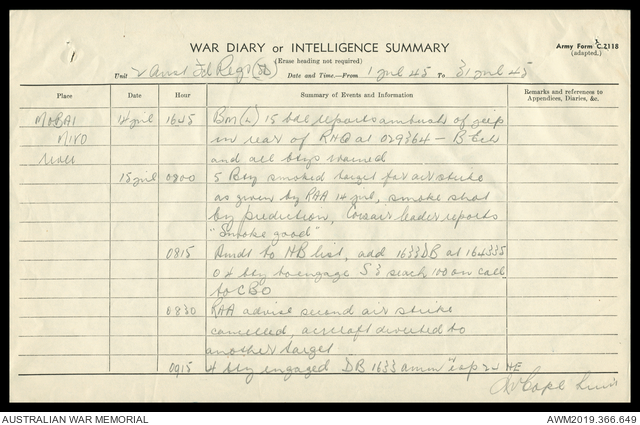 1
WAR DIARY or INTELLIGENCE SUMMARY
(Erase heading not required)
Army Form C.2118
(adapted.)
Unit 2 Aust Fd Regt Date and Time—From 1 Jul 45 To 31 Jul 45
Place Date Hour Summary of Events and Information Remarks and references to Appendices, Diaries, &c.
MOBAI 14 Jul 1645 Bm(L) 15 bde reports ambush of jeep
MIVO in rear of RHQ at 029364 – B Ech
River and all btys warned
15 Jul 0800 5 Bty smoked target for air strike
as given by RAA 14 Jul, smoke shot
by prediction, Corsair leader reports
"Smoke good"
0815 Amdt to HB list, add 1633 DB at 164335
O 4 bty to engage 5 & search 100 on call
to CBO
0830 RAA advise second air strike
cancelled, aircraft diverted to
another target
0915 4 bty engaged DB 1633 amm exp 24 HE
AUSTRALIAN WAR MEMORIAL
AWM2019.366.649